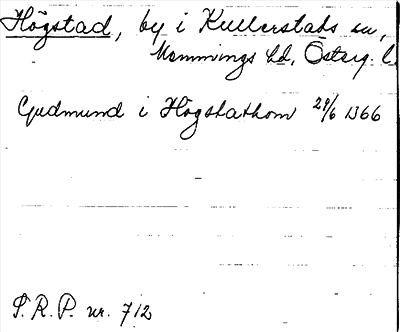 Högstad, by i Kullerstads sn,
Memmings hd, Österg. l.
Gudmund i Høgstathom 29/6 1366
S. R. P. nr. 712